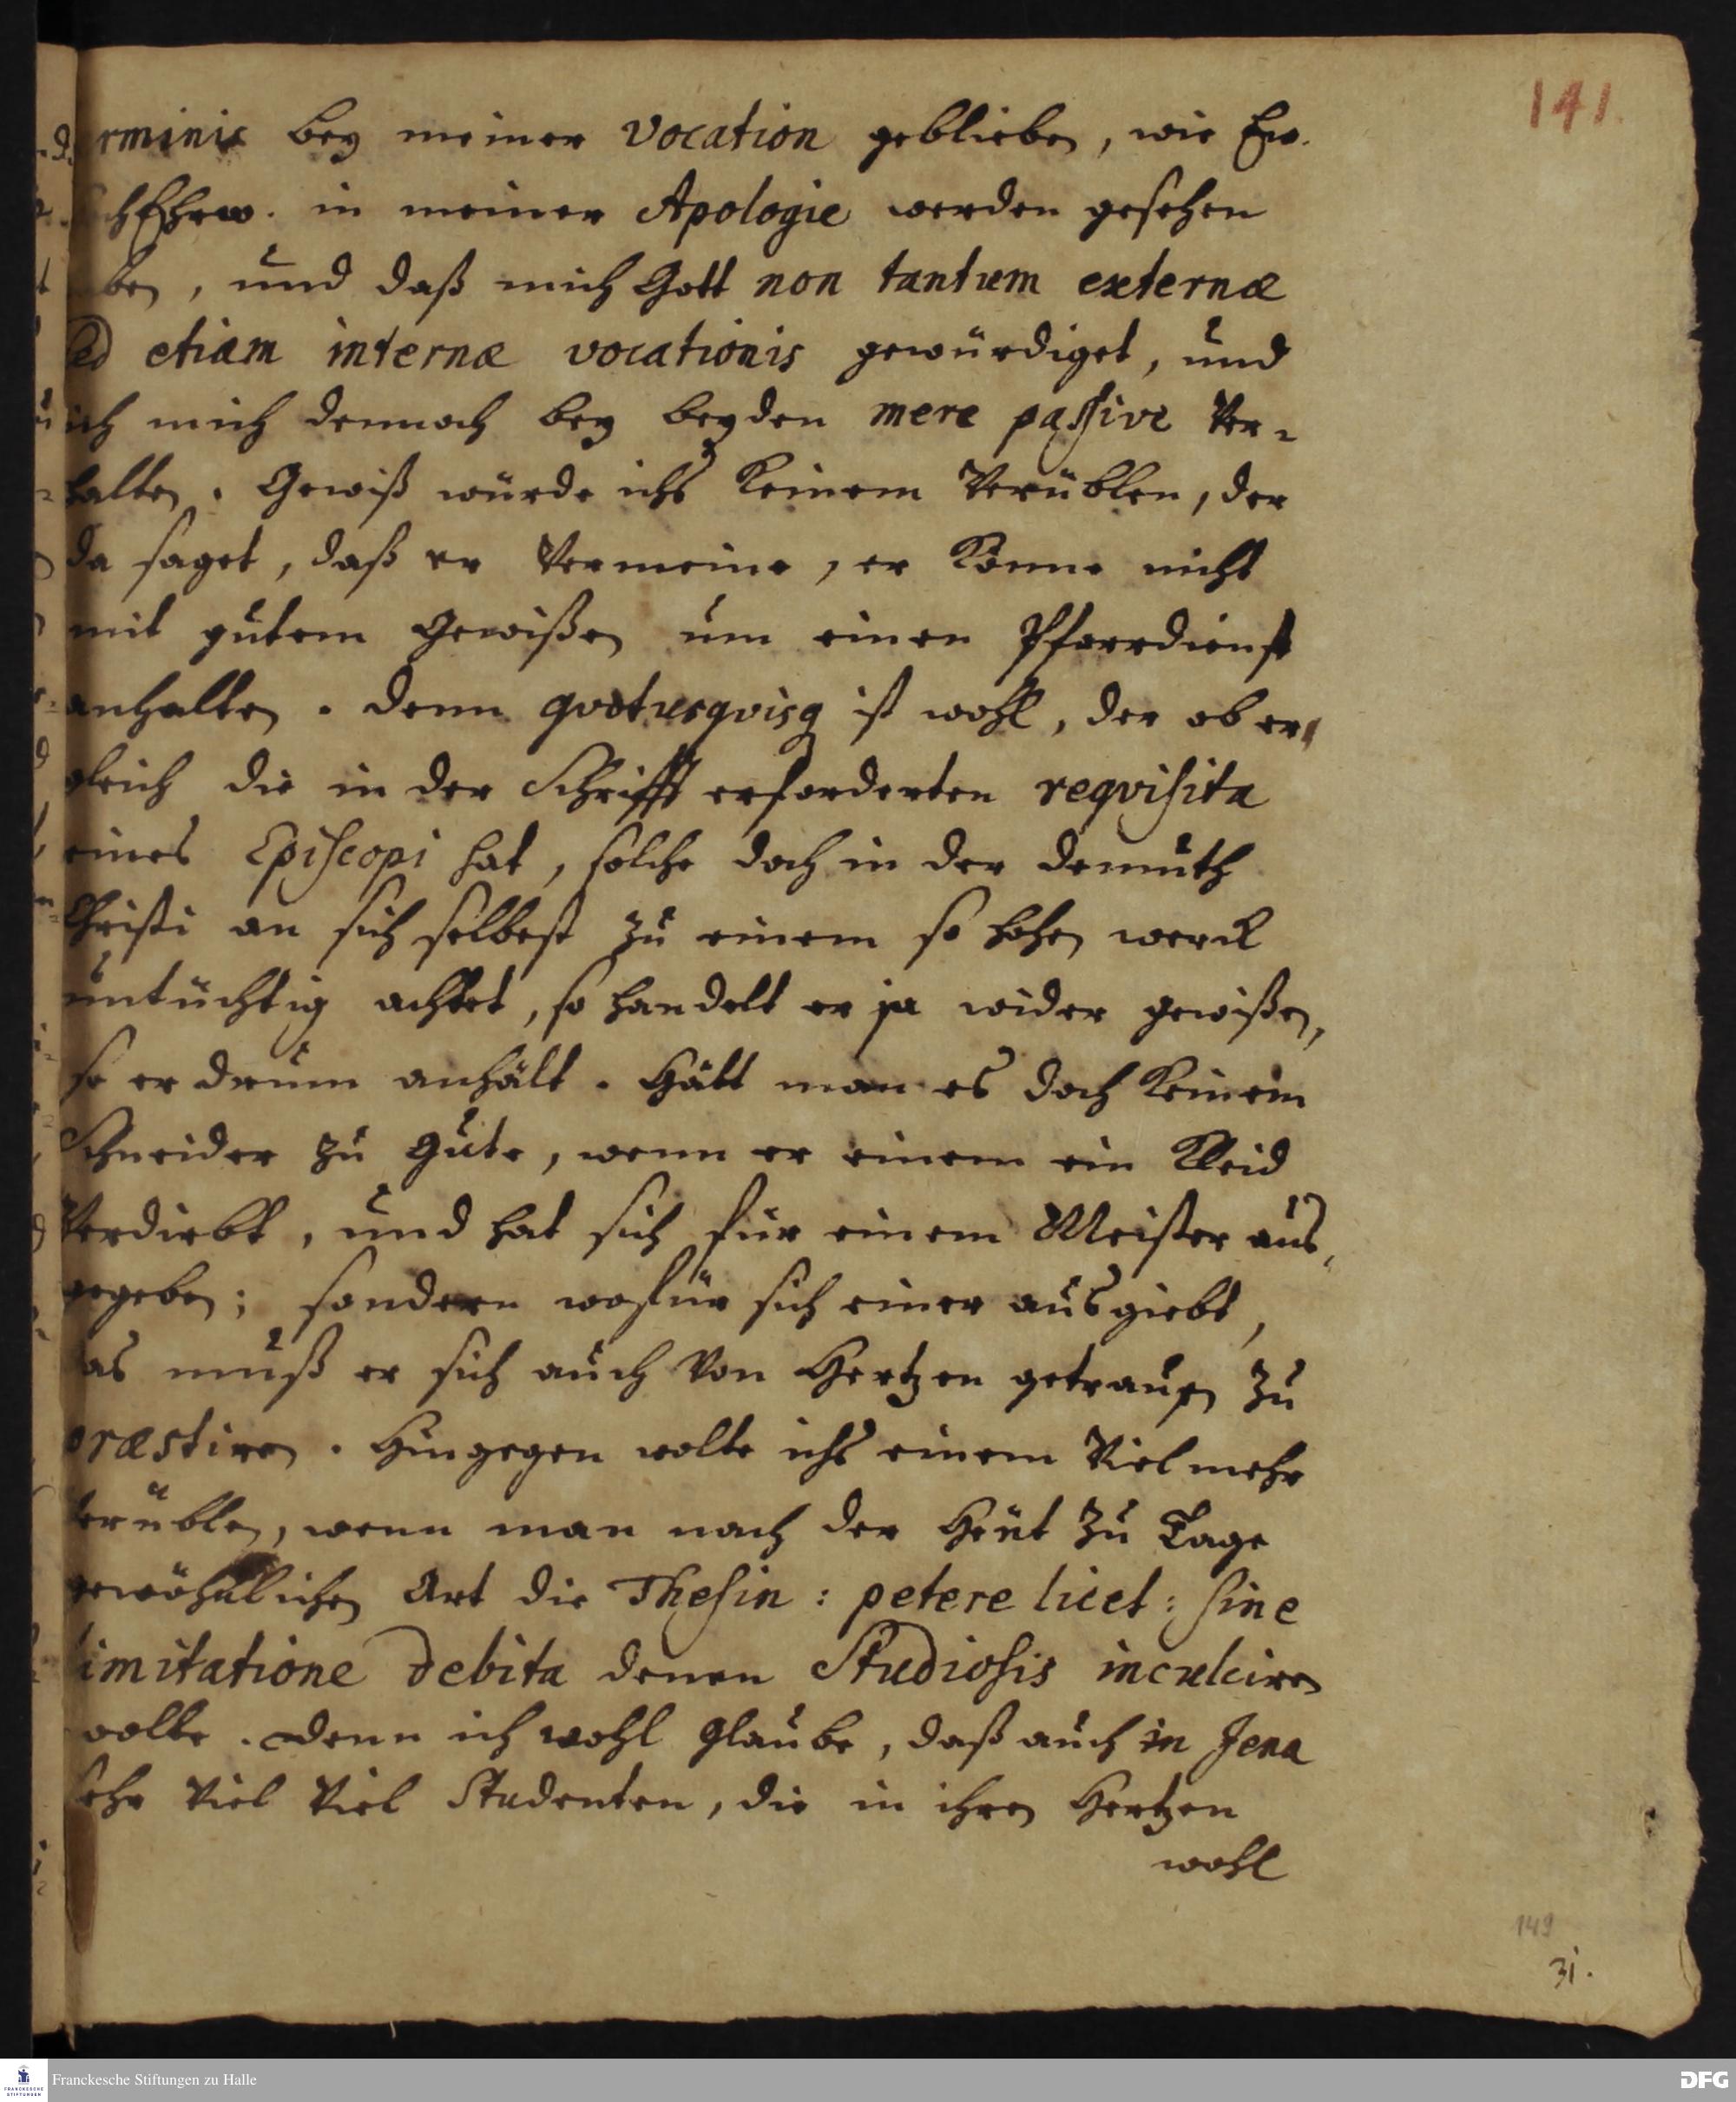 141.
rminis bey meiner Vocation geblieben, wie Ew.
chEhrw. in meiner Apologie werden gesehen
ben, und daß mich Gott non tantum externæ
sed etiam internæ vocationis gewürdiget, und
ich mich dennoch bey beyden mere passive Ver-
halten. Gewiß würde ichs Keinem Verüblen, der
da saget, daß er Vermeine, er Könne nicht
mit gutem Gewißen um einen Pfarrdienst
anhalten. denn qvotusqvisq ist wohl, der ob er
gleich die in der Schrifft erforderten reqvisita
eines Episcopi hat, solche doch in der demuth
Christi an sich selbest zu einem so hohen werck
untüchtig achtet, so handelt er ja wider gewißen,
so er drum anhält. Hält man es doch Keinem
Schneider zu gute, wenn er einem ein Kleid
Verdirbt, und hat sich für einem Meister aus,
gegeben; sondern wofür sich einer ausgiebt,
das muß er sich auch Von Hertzen getrauen zu
præstiren. Hingegen wolte ichs einem Viel mehr
verüblen, wenn man nach der Heut zu Tage
gewöhnlichen Art die Thesin: petere licet: sine
limitatione debita denen Studiosis inculciren
wolte. Denn ich wohl glaube, daß auch in Jena
sehr Viel Viel Studenten, die in ihren Hertzen
wohl
149
31.
Franckesche Stiftungen zu Halle
DFG